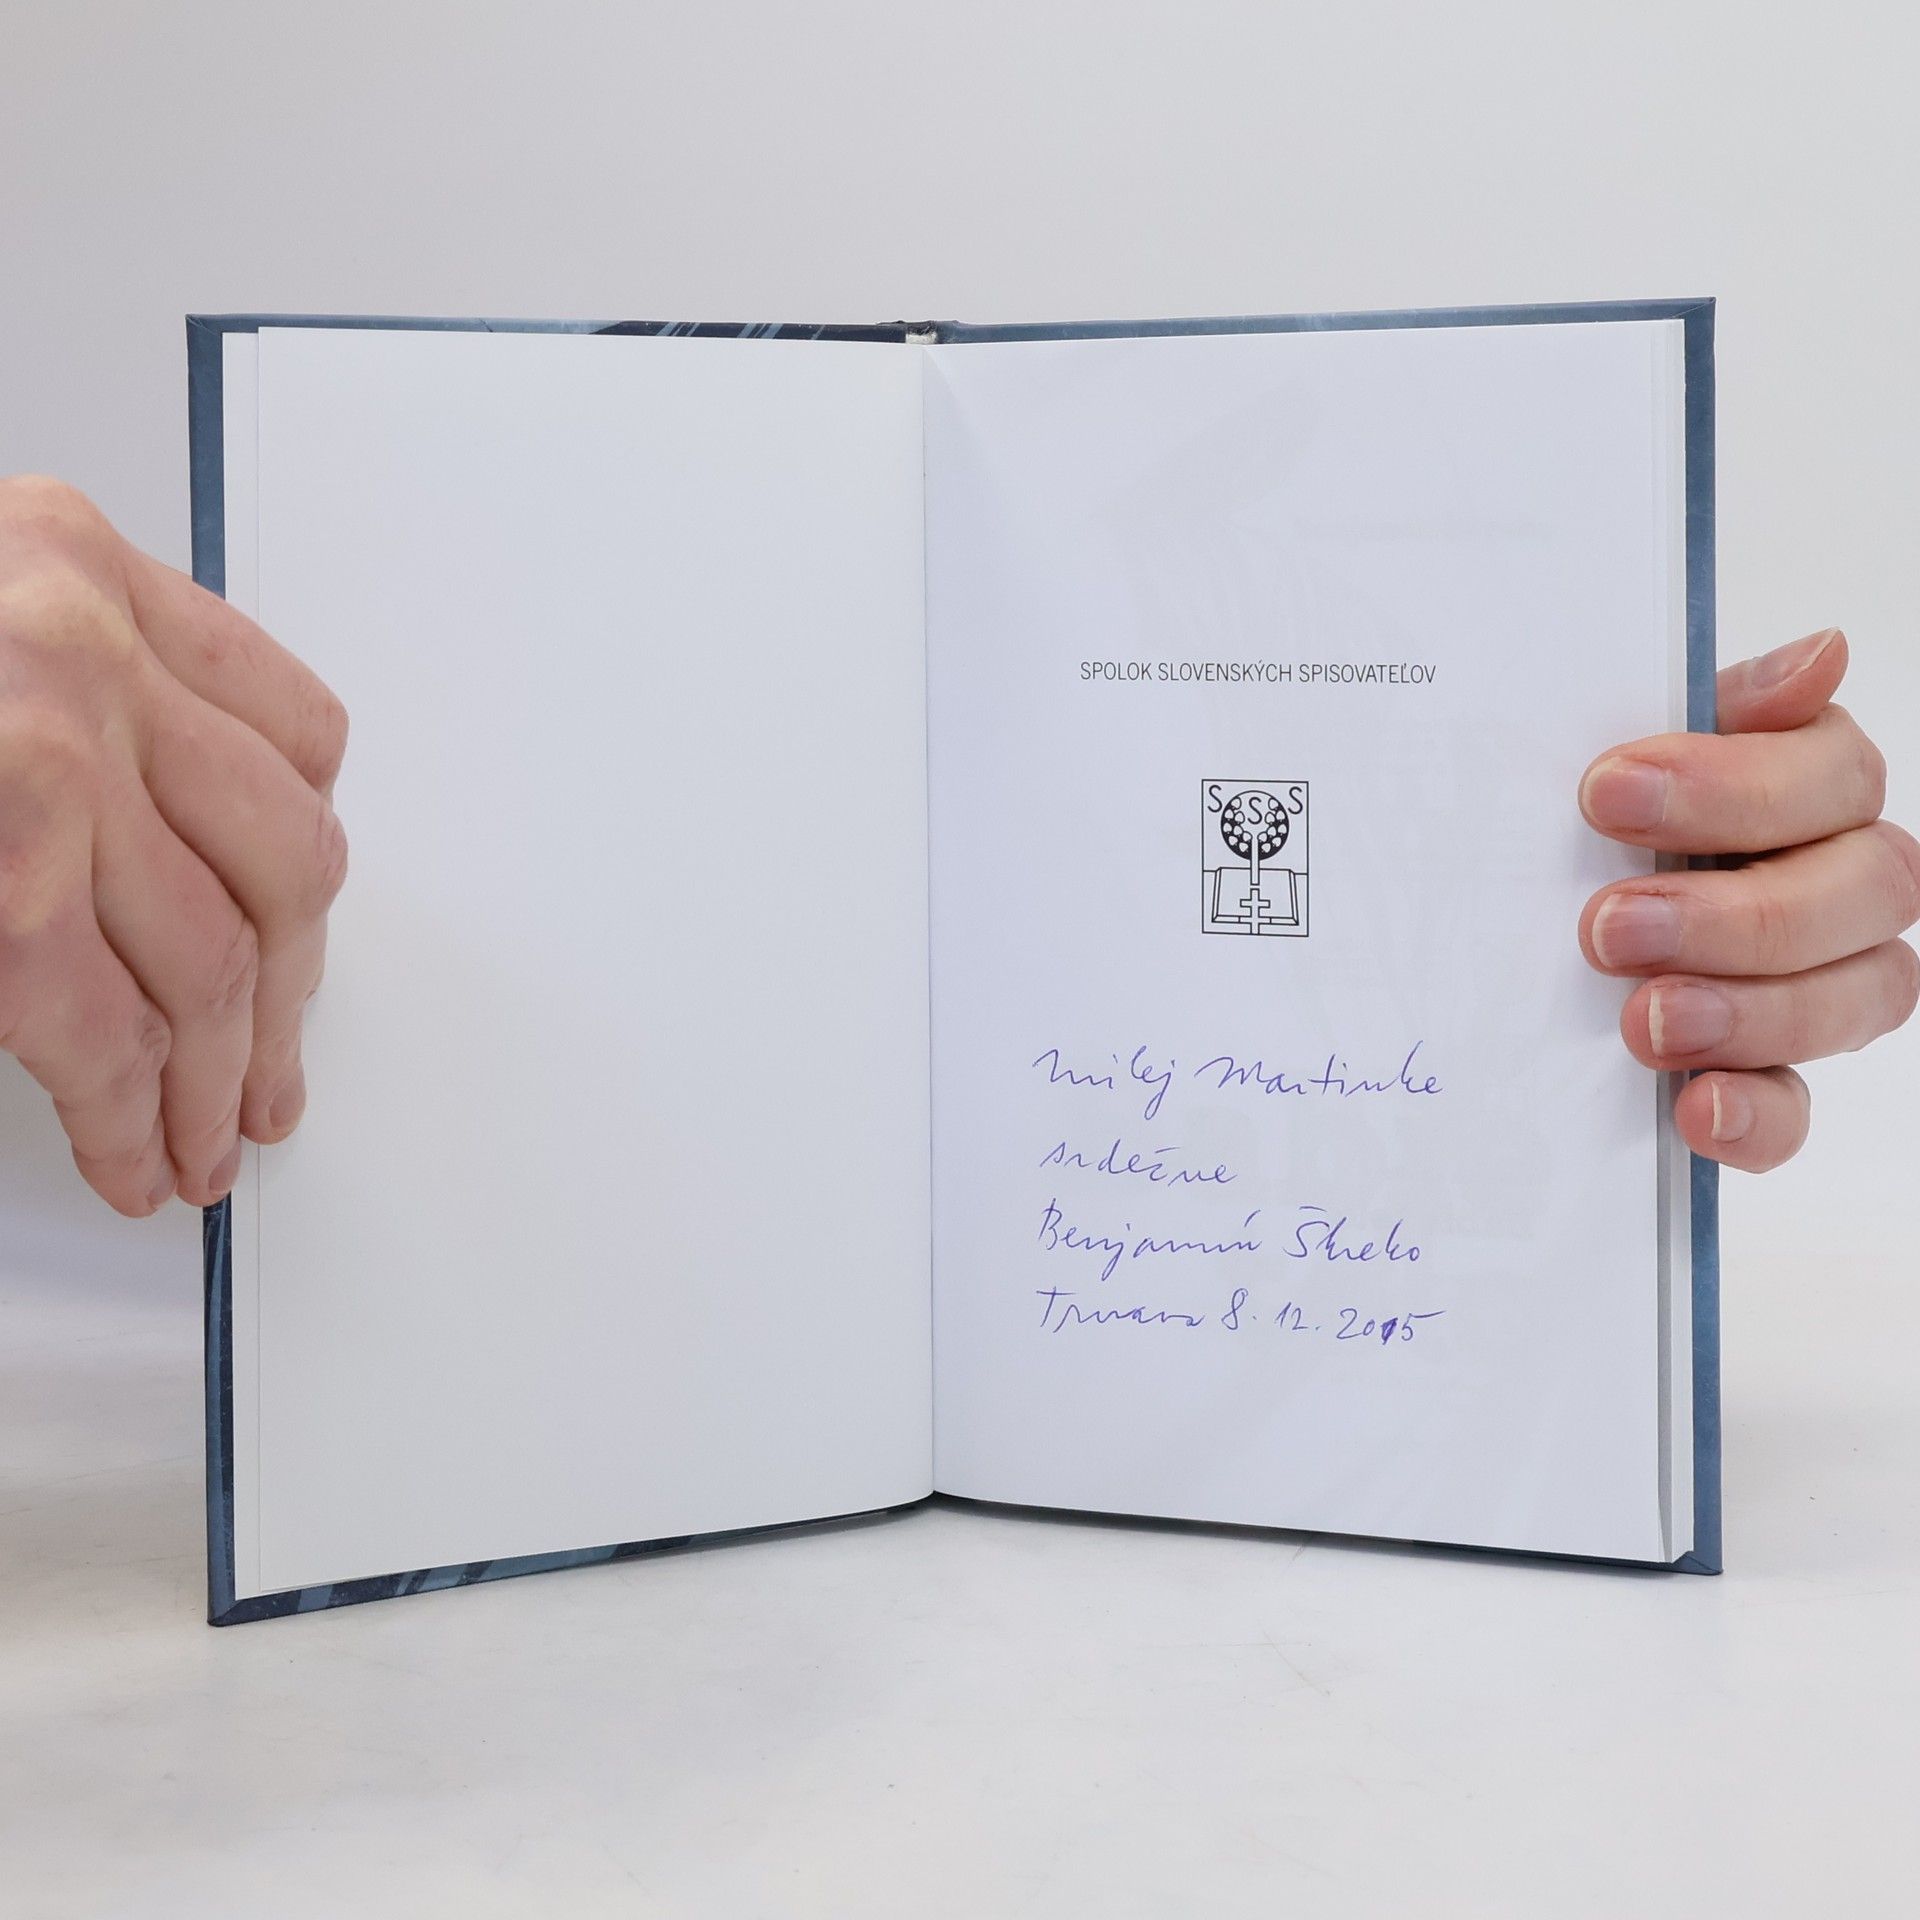 SPOLOK SLOVENSKÝCH SPISOVATEĽOV
S S S
Milej Martinke
srdečne
Benjamín Škreko
Trnava 8. 12. 2015